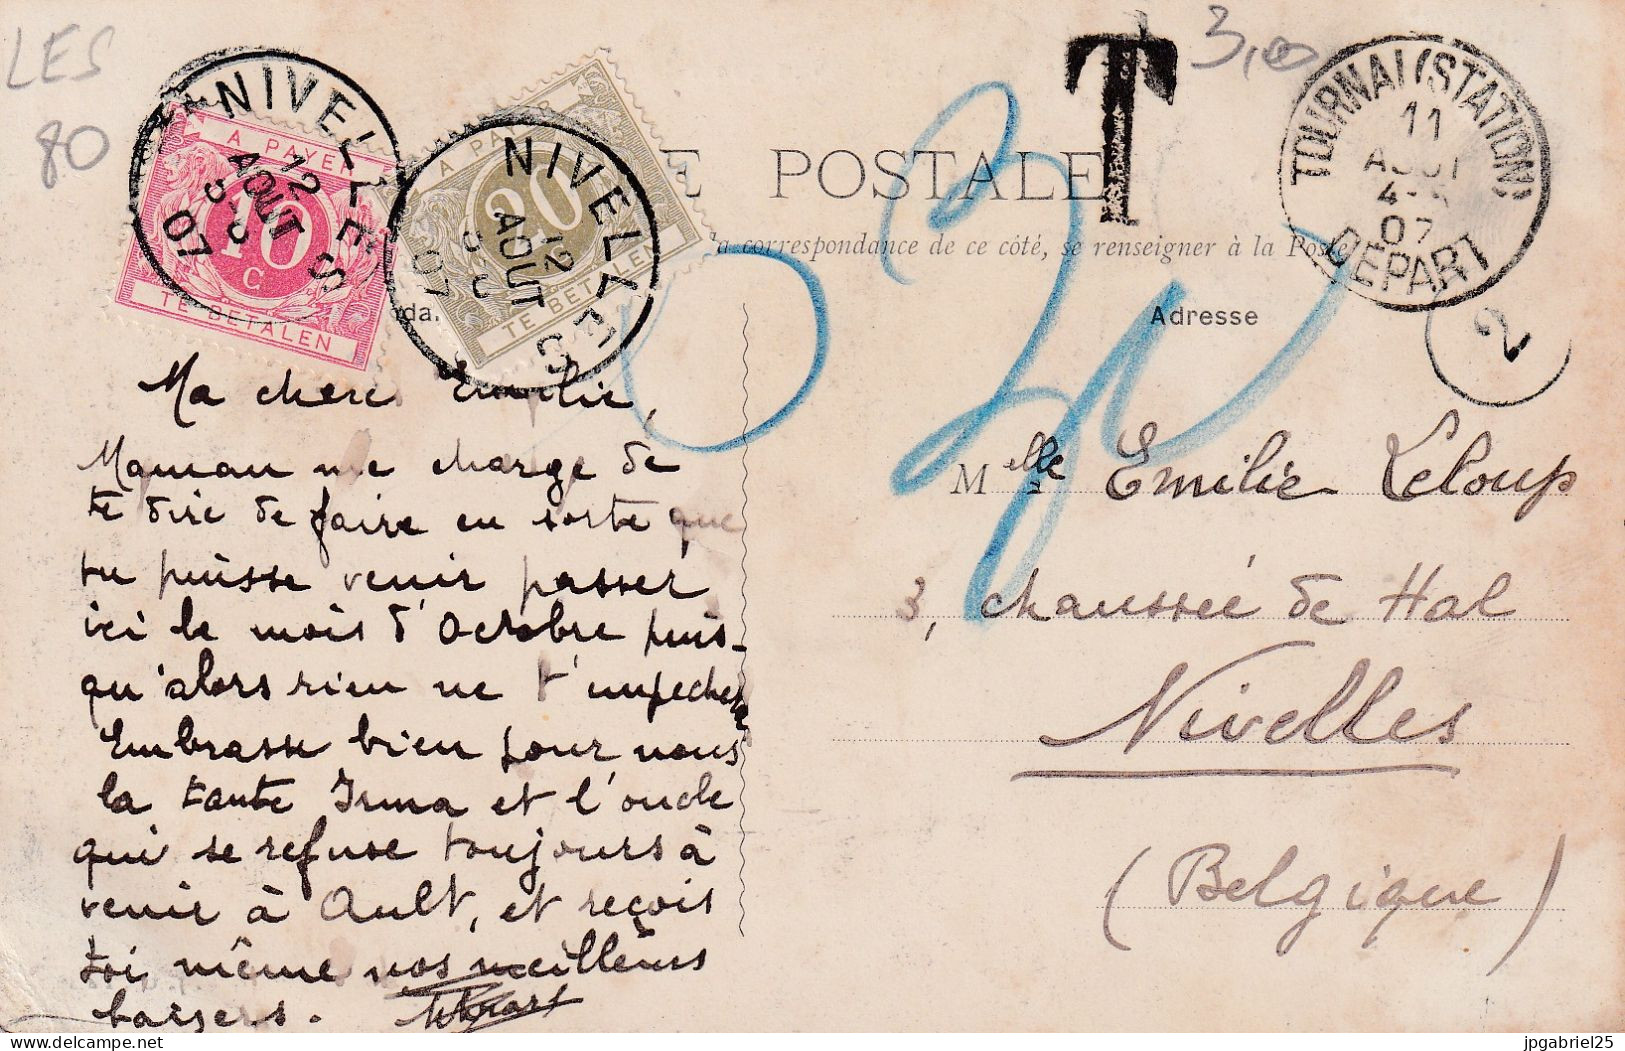 LES
80
3,00
T
NIVELLES
12
AOUT
07
A PAYER
10
C
TE BETALEN
NIVELLES
12
AOUT
07
A PAYER
20
TE BETALEN
TOURNAI (STATION)
11
AOUT
07
DÉPART
E POSTALE
la correspondance de ce côté, se renseigner à la Poste
30
2
da
Adresse
Ma chere Emilie,
Maman me charge de
te dire de faire en sorte que
tu puisse venir passer
ici le mois d'Octobre puis-
qu'alors rien ne t'empeche
Embrasse bien pour nous
la tante Irma et l'oncle
qui se refuse toujours à
venir à Ault, et reçois
toi même nos meilleurs
baisers.
Melle Emilie Leloup
3, chaussée de Hal
Nivelles
(Belgique)
delcampe.net
jpgabriel25